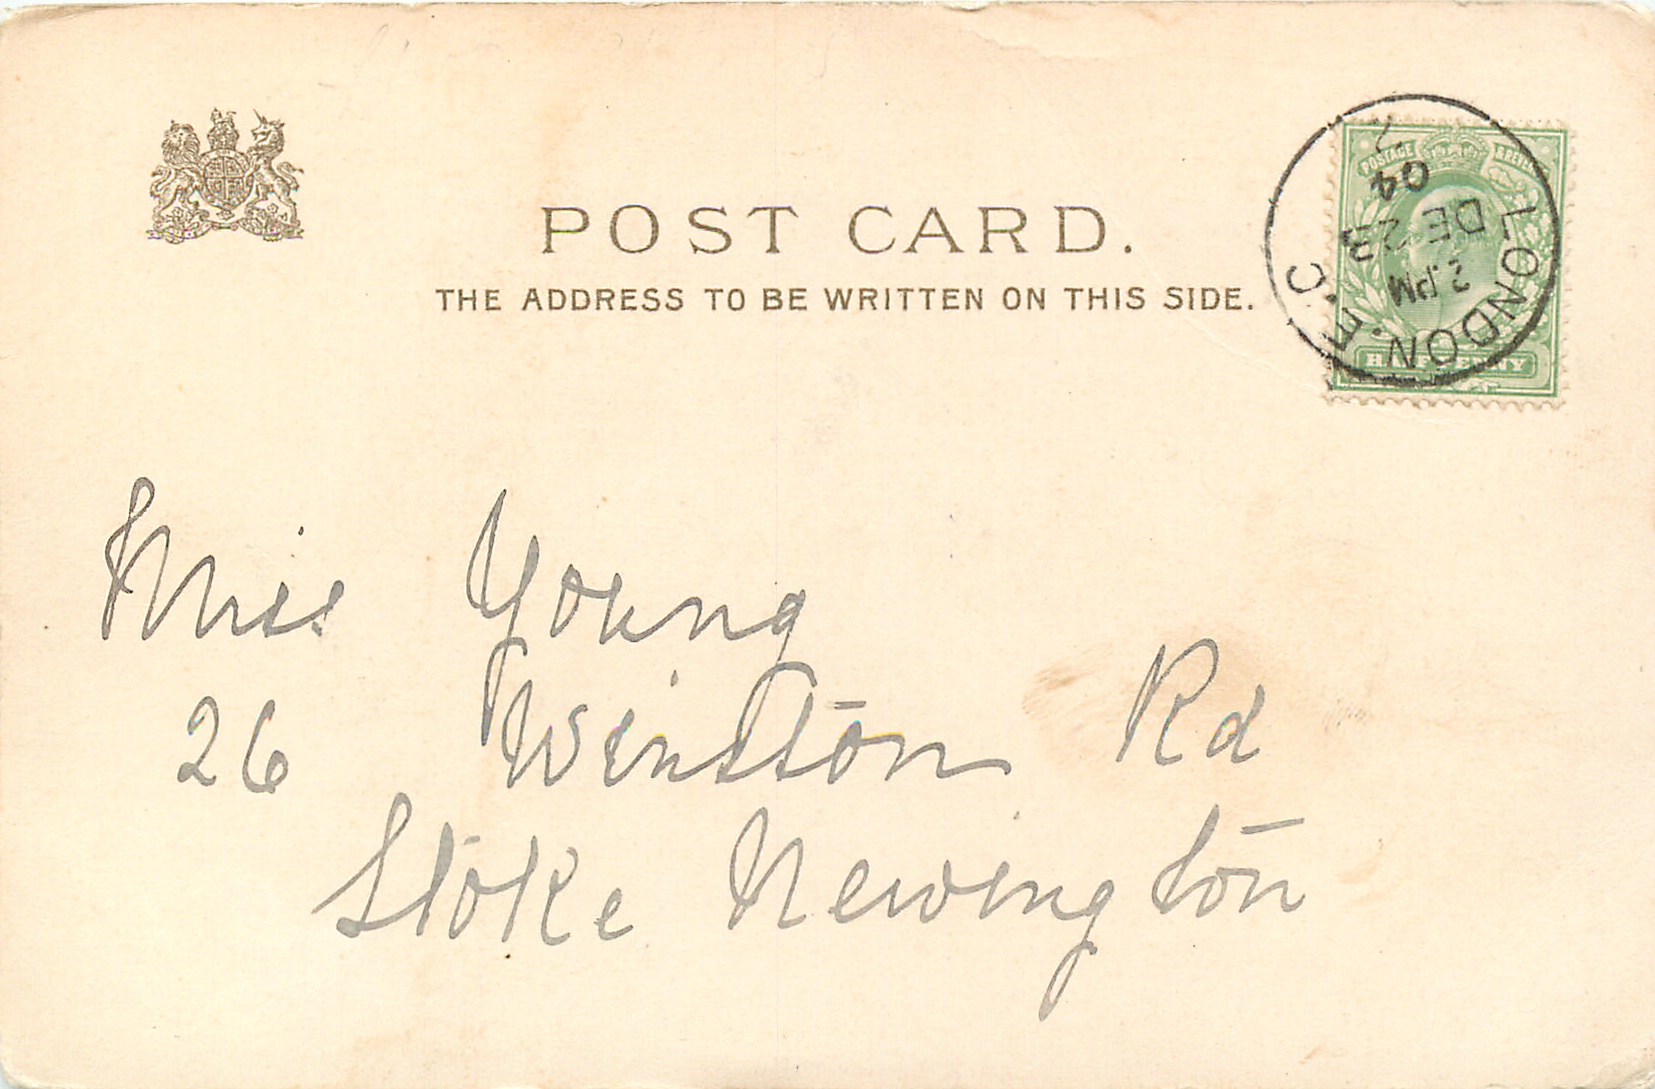 POST CARD.
THE ADDRESS TO BE WRITTEN ON THIS SIDE.
POSTAGE & REVENUE
HALFPENNY
LONDON. E.C
2. PM
DE 23
04
Miss Young
26 Winston Rd
Stoke Newington